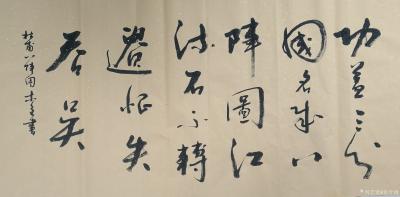 功盖三分
國名成八
陣圖江
流石不轉
遺恨失
吞吴
杜甫八阵图 书